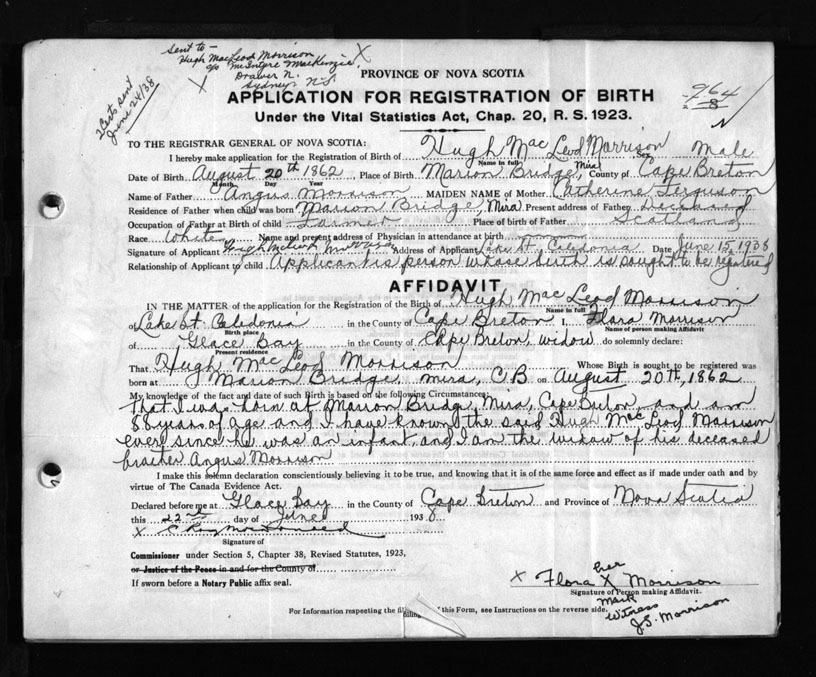 Sent to -
Hugh MacLeod Morrison
c/o McIntyre MacKenzie
Drawer N.
Sydney N-S.
X
X
2 Certs sent
June 24/38
964
8
PROVINCE OF NOVA SCOTIA
APPLICATION FOR REGISTRATION OF BIRTH
Under the Vital Statistics Act, Chap. 20, R. S. 1923.
TO THE REGISTRAR GENERAL OF NOVA SCOTIA:
I hereby make application for the Registration of Birth of Hugh Mac Leod Morrison Sex Male
Name in full
Date of Birth August 20th 1862 Place of Birth Marion Bridge, Mira County of Cape Breton
Month Day Year
Name of Father Angus Morrison MAIDEN NAME of Mother Catherine Ferguson
Residence of Father when child was born Marion Bridge, Mira Present address of Father Deceased
Occupation of Father at Birth of child Farmer Place of birth of Father Scotland
Race White Name and present address of Physician in attendance at birth
Signature of Applicant Hugh McLeod Morrison Address of Applicant Lake St, Caledonia Date June 15, 1938
Relationship of Applicant to child Applicant is person whose birth is sought to be registered
AFFIDAVIT
IN THE MATTER of the application for the Registration of the Birth of Hugh Mac Leod Morrison
Name in full
of Lake St. Caledonia in the County of Cape Breton I, Flora Morrison
Birth place Name of person making Affidavit
of Glace Bay in the County of Cape Breton, widow do solemnly declare:
Present residence
That Hugh Mac Leod Morrison Whose Birth is sought to be registered was
born at Marion Bridge Mira, C.B. on August 20th, 1862
My knowledge of the fact and date of such Birth is based on the following Circumstances:
that I was born at Marion Bridge, Mira, Cape Breton and am
88 years of age and I have known the said Hugh Mac Leod Morrison
ever since he was an infant and I am the widow of his deceased
brother Angus Morrison
I make this solemn declaration conscientiously believing it to be true, and knowing that it is of the same force and effect as if made under oath and by
virtue of The Canada Evidence Act.
Declared before me at Glace Bay in the County of Cape Breton and Province of Nova Scotia
this 22nd day of June 1938
X
Signature of
Commissioner under Section 5, Chapter 38, Revised Statutes, 1923,
or Justice of the Peace in and for the County of
If sworn before a Notary Public affix seal.
her
X Flora X Morrison
Signature of Person making Affidavit.
mark
Witness
J.S. Morrison
For Information respecting the filing of this Form, see Instructions on the reverse side.